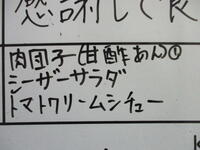 感謝して食
肉団子(甘酢あん)①
シーザーサラダ
トマトクリームシチュー